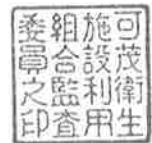 可茂衛生
施設利用
組合監査
委員之印